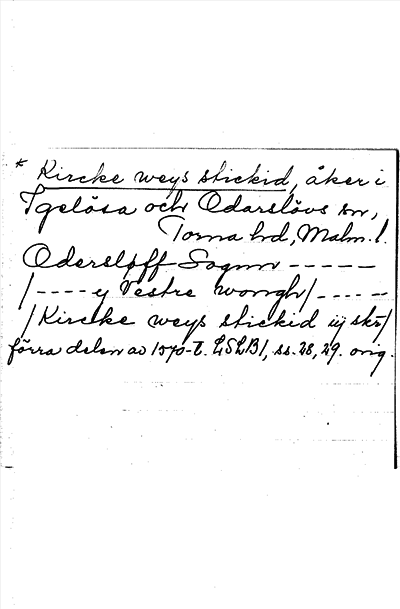 * Kircke weys stickid, åker i
Igelösa och Odarslövs sn,
Torna hd, Malm. l.
Ødersløff Sognn -----
/---- y Vestre wongh/-----
/Kircke weys stickid iij skr/
förra delen av 1570-t. LSLB1, ss. 28, 29. orig.